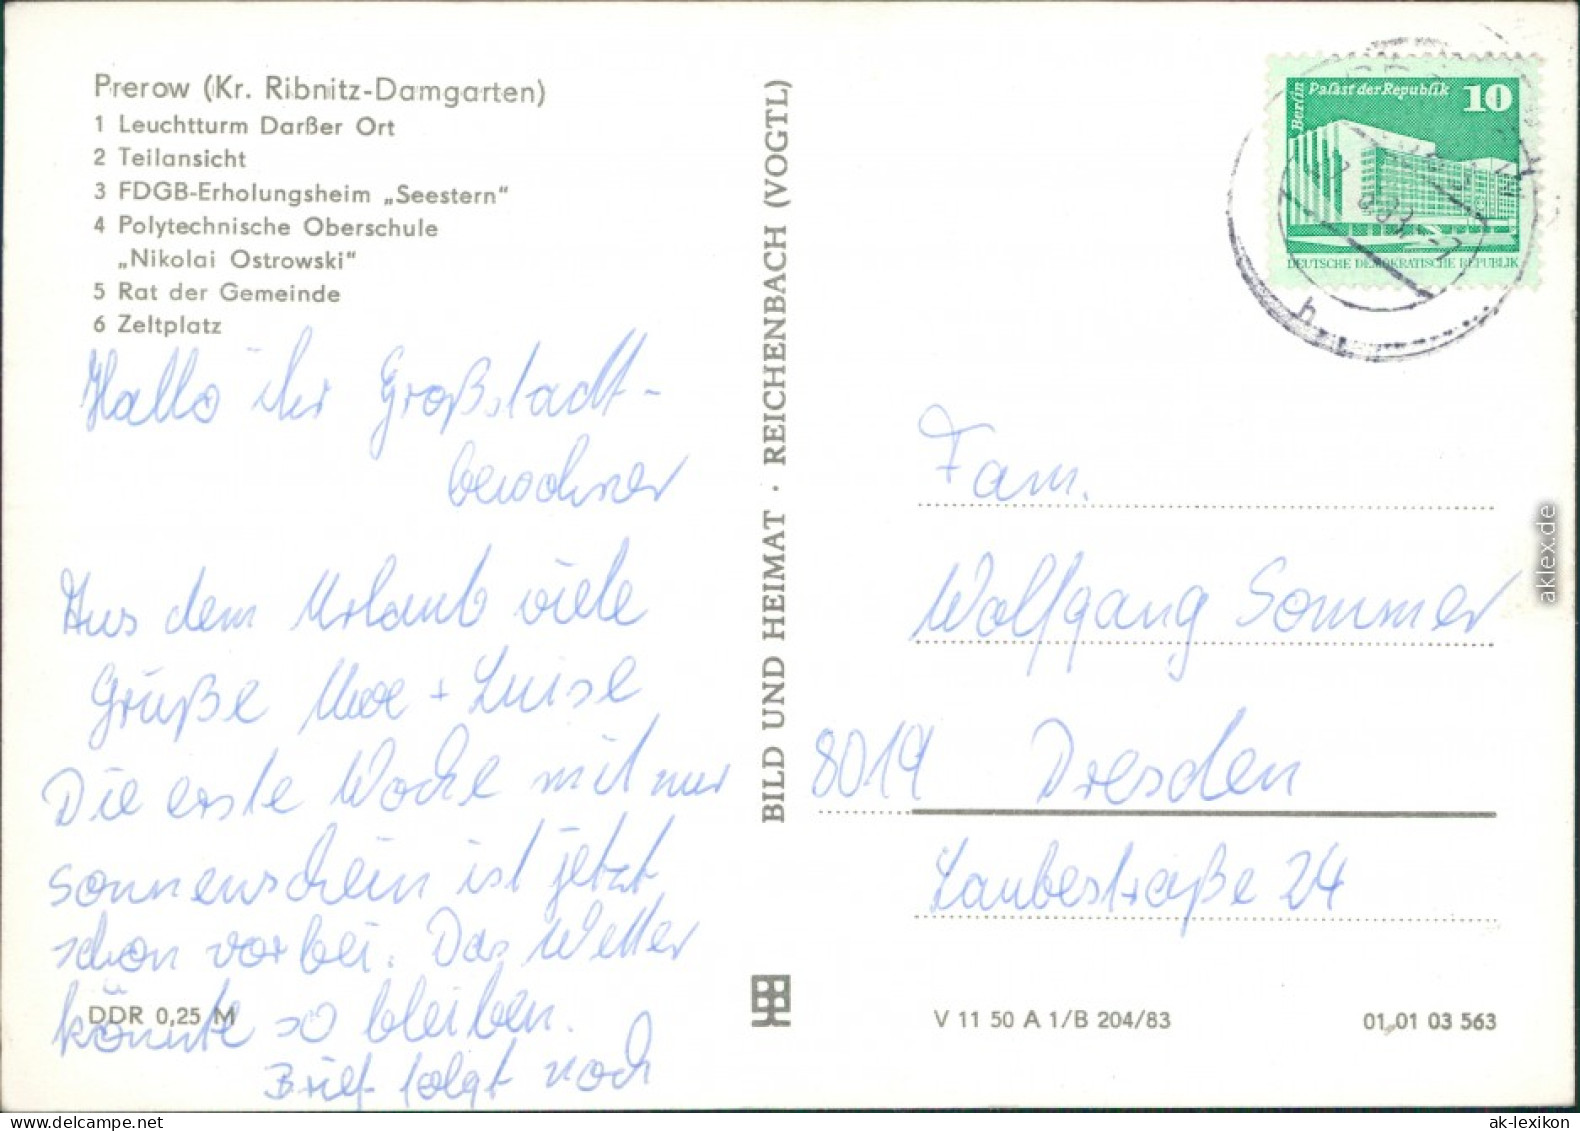 Prerow (Kr. Ribnitz-Damgarten)
1 Leuchtturm Darßer Ort
2 Teilansicht
3 FDGB-Erholungsheim „Seestern“
4 Polytechnische Oberschule
„Nikolai Ostrowski“
5 Rat der Gemeinde
6 Zeltplatz
Hallo ihr Großstadt-
bewohner
Aus dem Urlaub viele
Grüße Uwe + Luise
Die erste Woche mit nur
Sonnenschein ist jetzt
schon vorbei. Das Wetter
könnte so bleiben.
Brief folgt noch
DDR 0,25 M
BILD UND HEIMAT · REICHENBACH (VOGTL)
Berlin
Palast der Republik
10
DEUTSCHE DEMOKRATISCHE REPUBLIK
h
Fam.
Wolfgang Sommer
8019 Dresden
Laubestraße 24
V 11 50 A 1/B 204/83
01 01 03 563
aklex.de
© ak-lexikon